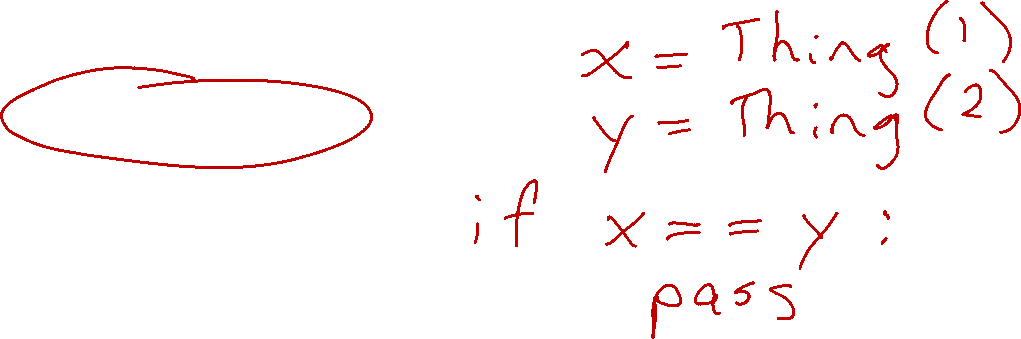 x = Thing (1)
y = Thing (2)
if x == y :
pass